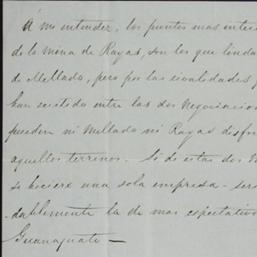 A mi entender, los puntos mas inter
de la mina de Rayas, son los que linda
de Mellado, pero por las rivalidades
han existido entre las dos Negociacio
pueden ni Mellado ni Rayas disfru
aquellos terrenos. Si de estas dos
se hiciese una sola empresa, ser
dablemente la de mas espectativa
Guanajuato —